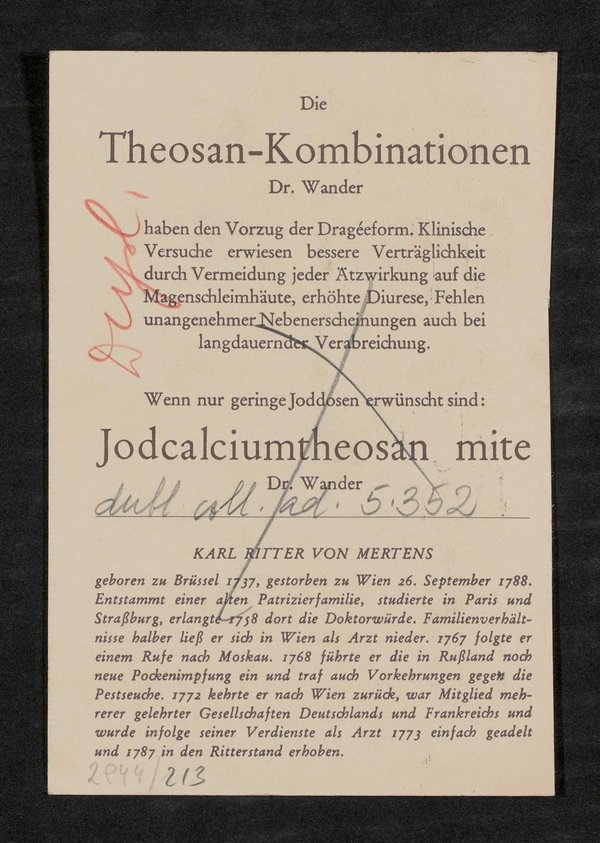 Die
Theosan-Kombinationen
Dr. Wander
haben den Vorzug der Dragéeform. Klinische
Versuche erwiesen bessere Verträglichkeit
durch Vermeidung jeder Ätzwirkung auf die
Magenschleimhäute, erhöhte Diurese, Fehlen
unangenehmer Nebenerscheinungen auch bei
langdauernder Verabreichung.
Wenn nur geringe Joddosen erwünscht sind:
Jodcalciumtheosan mite
Dr. Wander
dubl. coll. ad. 5.352
KARL RITTER VON MERTENS
geboren zu Brüssel 1737, gestorben zu Wien 26. September 1788.
Entstammt einer alten Patrizierfamilie, studierte in Paris und
Straßburg, erlangte 1758 dort die Doktorwürde. Familienverhält-
nisse halber ließ er sich in Wien als Arzt nieder. 1767 folgte er
einem Rufe nach Moskau. 1768 führte er die in Rußland noch
neue Pockenimpfung ein und traf auch Vorkehrungen gegen die
Pestseuche. 1772 kehrte er nach Wien zurück, war Mitglied meh-
rerer gelehrter Gesellschaften Deutschlands und Frankreichs und
wurde infolge seiner Verdienste als Arzt 1773 einfach geadelt
und 1787 in den Ritterstand erhoben.
2944/213